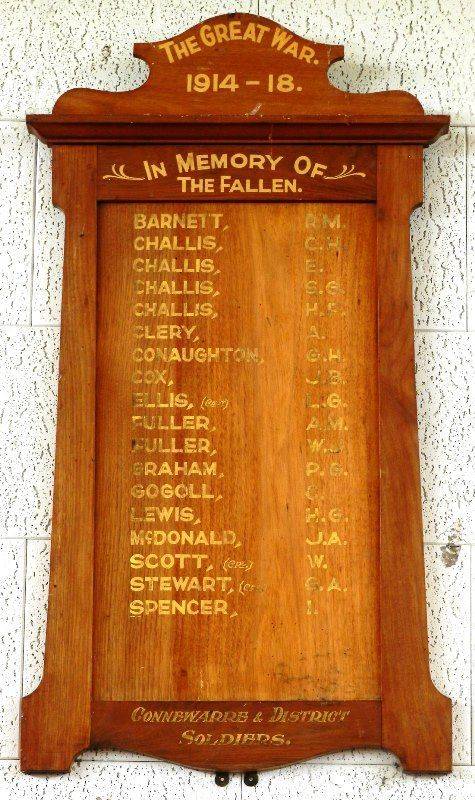 THE GREAT WAR.
1914 - 18.
IN MEMORY OF
THE FALLEN.
BARNETT, R.M.
CHALLIS, C.H.
CHALLIS, E.
CHALLIS, S.G.
CHALLIS, H.F.
CLERY, A.
CONAUGHTON, G.H.
COX, J.B.
ELLIS, L.G.
FULLER, A.M.
FULLER, W.J.
GRAHAM, P.G.
GOGOLL,
LEWIS, H.G.
McDONALD, J.A.
SCOTT, (CPL) W.
STEWART, G.A.
SPENCER, I.
CONNEWARRE & DISTRICT
SOLDIERS.